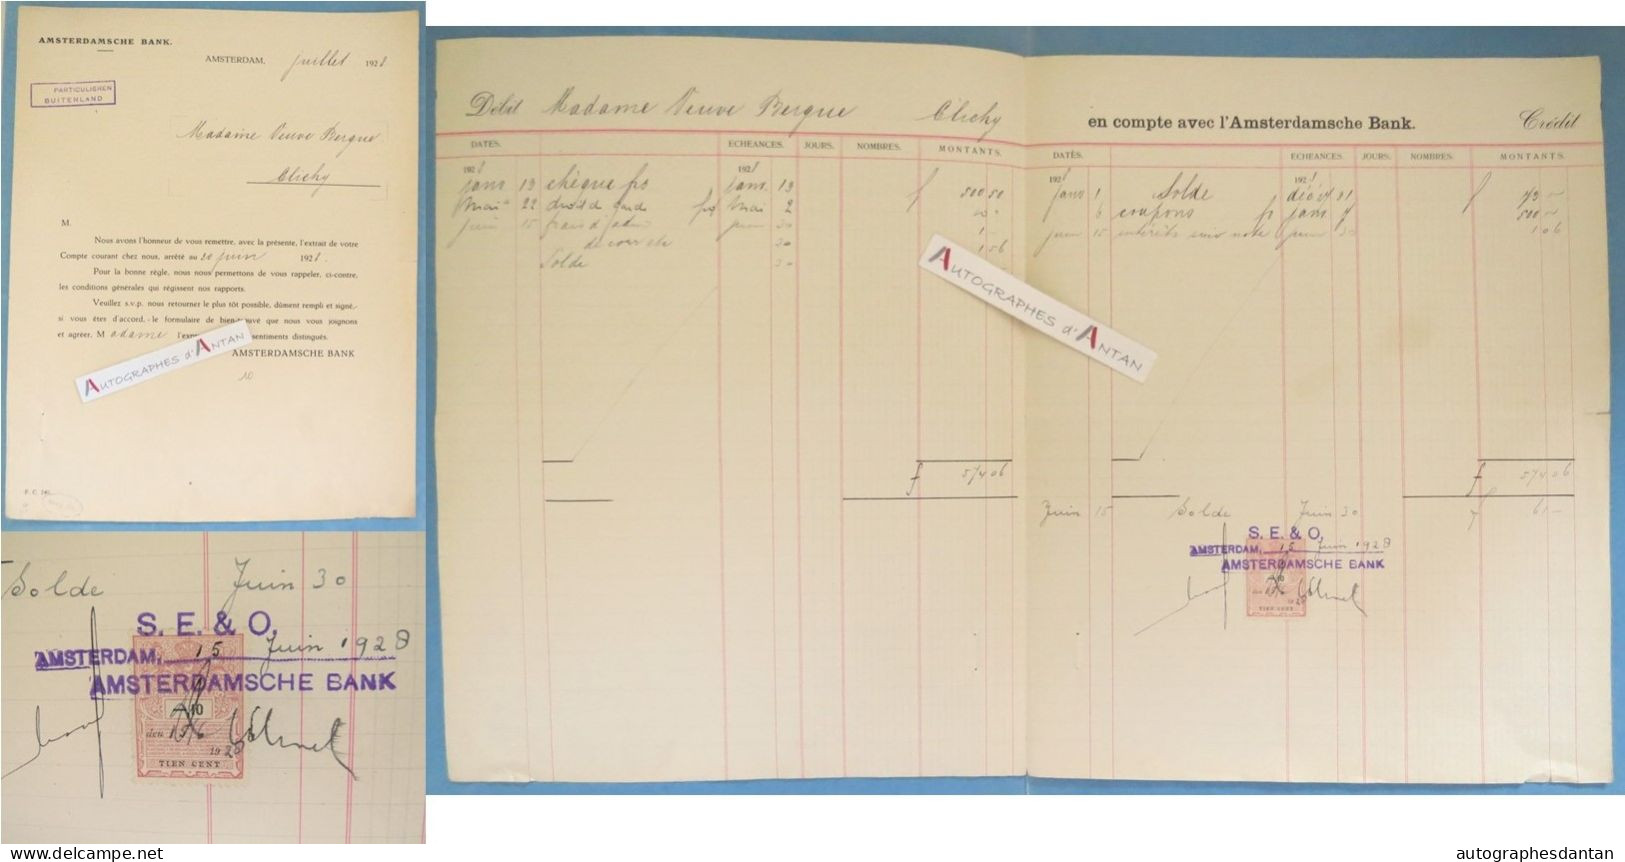 AMSTERDAMSCHE BANK.
AMSTERDAM, juillet 1928
PARTICULIEREN
BUITENLAND
Madame Veuve Bergue
Clichy
M.
Nous avons l'honneur de vous remettre, avec la présente, l'extrait de votre
Compte courant chez nous, arrêté au 20 juin 1928.
Pour la bonne règle, nous nous permettons de vous rappeler, ci-contre,
les conditions générales qui régissent nos rapports.
Veuillez s.v.p. nous retourner le plus tôt possible, dûment rempli et signé,
si vous êtes d'accord, le formulaire de bien-trouvé que nous vous joignons
et agréer, Madame l'exp sentiments distingués.
AMSTERDAMSCHE BANK
10
AUTOGRAPHES d'ANTAN
Débit Madame Veuve Bergue Clichy en compte avec l'Amsterdamsche Bank. Crédit
DATES. ECHEANCES. JOURS. NOMBRES. MONTANTS. DATES. ECHEANCES. JOURS. NOMBRES. MONTANTS.
1928 1928 1928 1928
janv 13 chèque janv 13 f 500 50 janv 1 Solde 31 f 73 –
mai 22 droit de garde mai 2 6 coupons janv 500 –
juin 15 frais d' juin 30 1 – juin 15 intérêts suiv note juin 30 1 06
30 1 56
Solde
AUTOGRAPHES d'ANTAN
f 574 06 f 574 06
Juin 15 Solde Juin 30 f 61 –
S. E. & O.
AMSTERDAM, 15 Juin 1928
AMSTERDAMSCHE BANK
10
1928
TIEN CENT
Solde Juin 30
S. E. & O.
AMSTERDAM, 15 Juin 1928
AMSTERDAMSCHE BANK
10
den 15/6
1928
TIEN CENT
www.delcampe.net autographesdantan